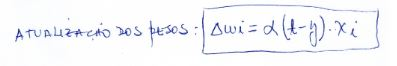 ATUALIZAÇÃO DOS PESOS: Δwi = α(t-y).xi